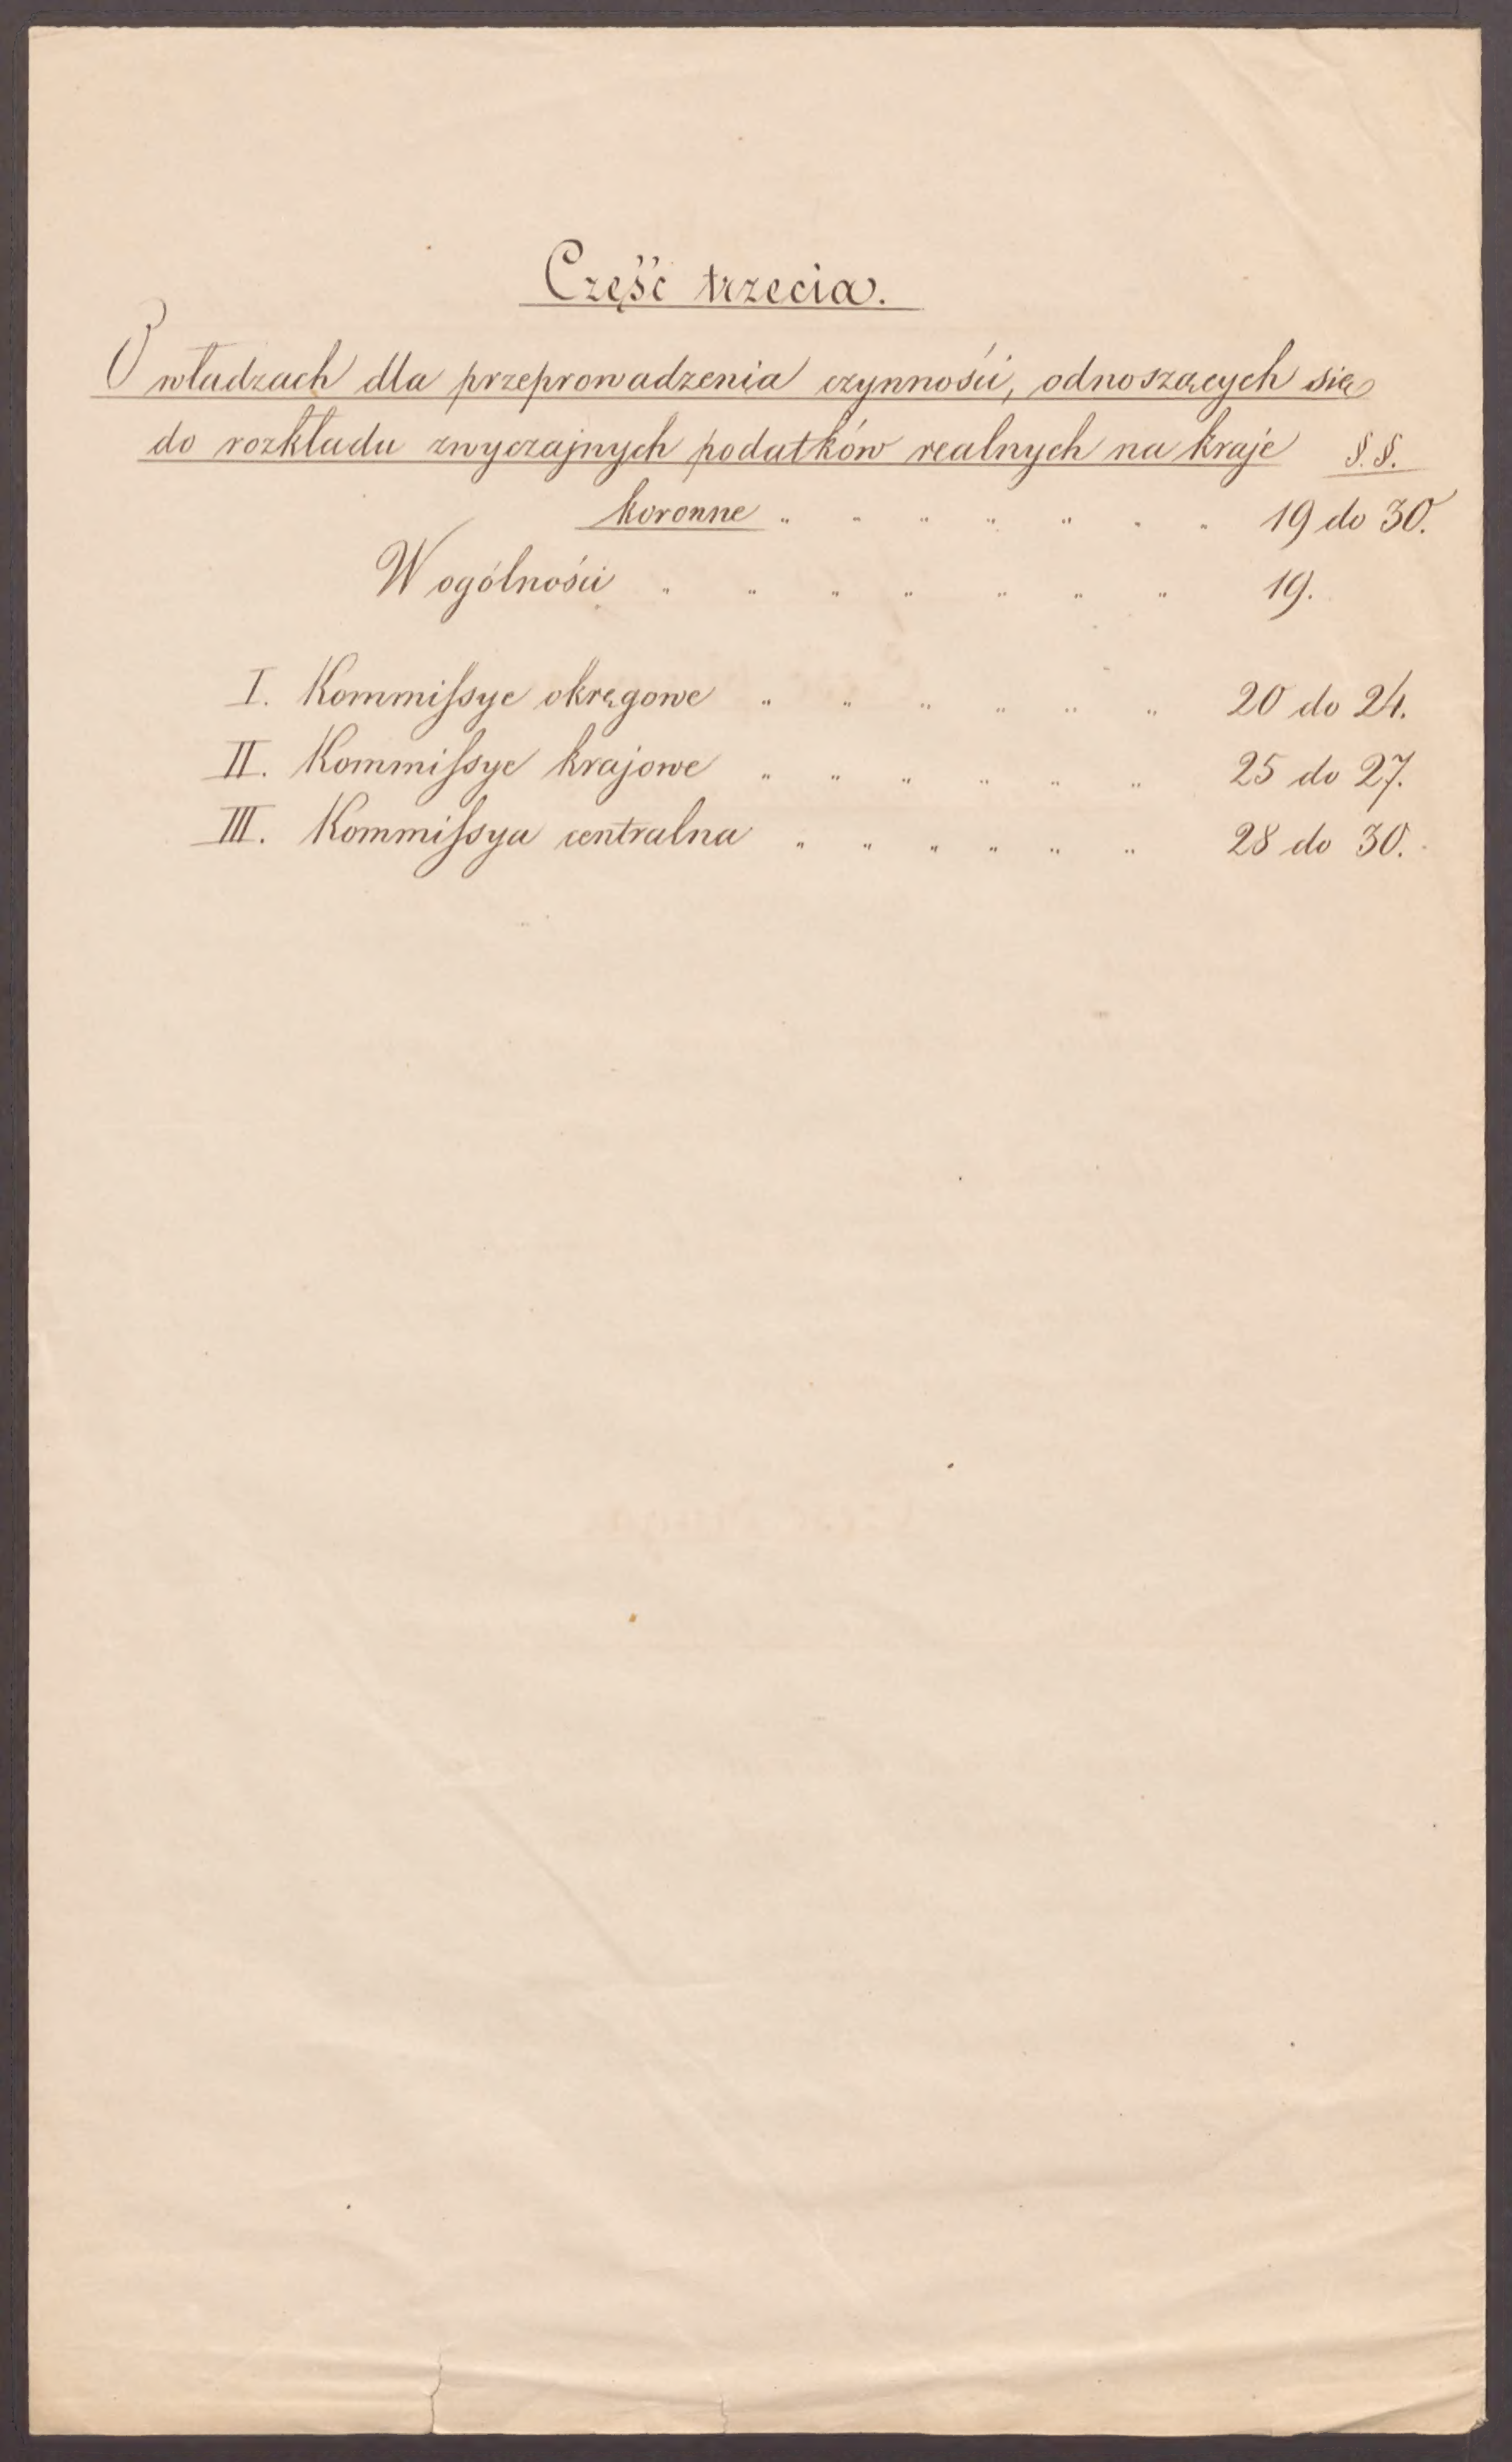 Część trzecia.
O władzach dla przeprowadzenia czynności, odnoszących się
do rozkładu zwyczajnych podatków realnych na kraje §.§.
koronne " " " " " " " 19 do 30.
W ogólności " " " " " " " 19.
I. Kommiſsye okręgowe " " " " " " 20 do 24.
II. Kommiſsye krajowe " " " " " " 25 do 27.
III. Kommiſsya centralna " " " " " " 28 do 30.